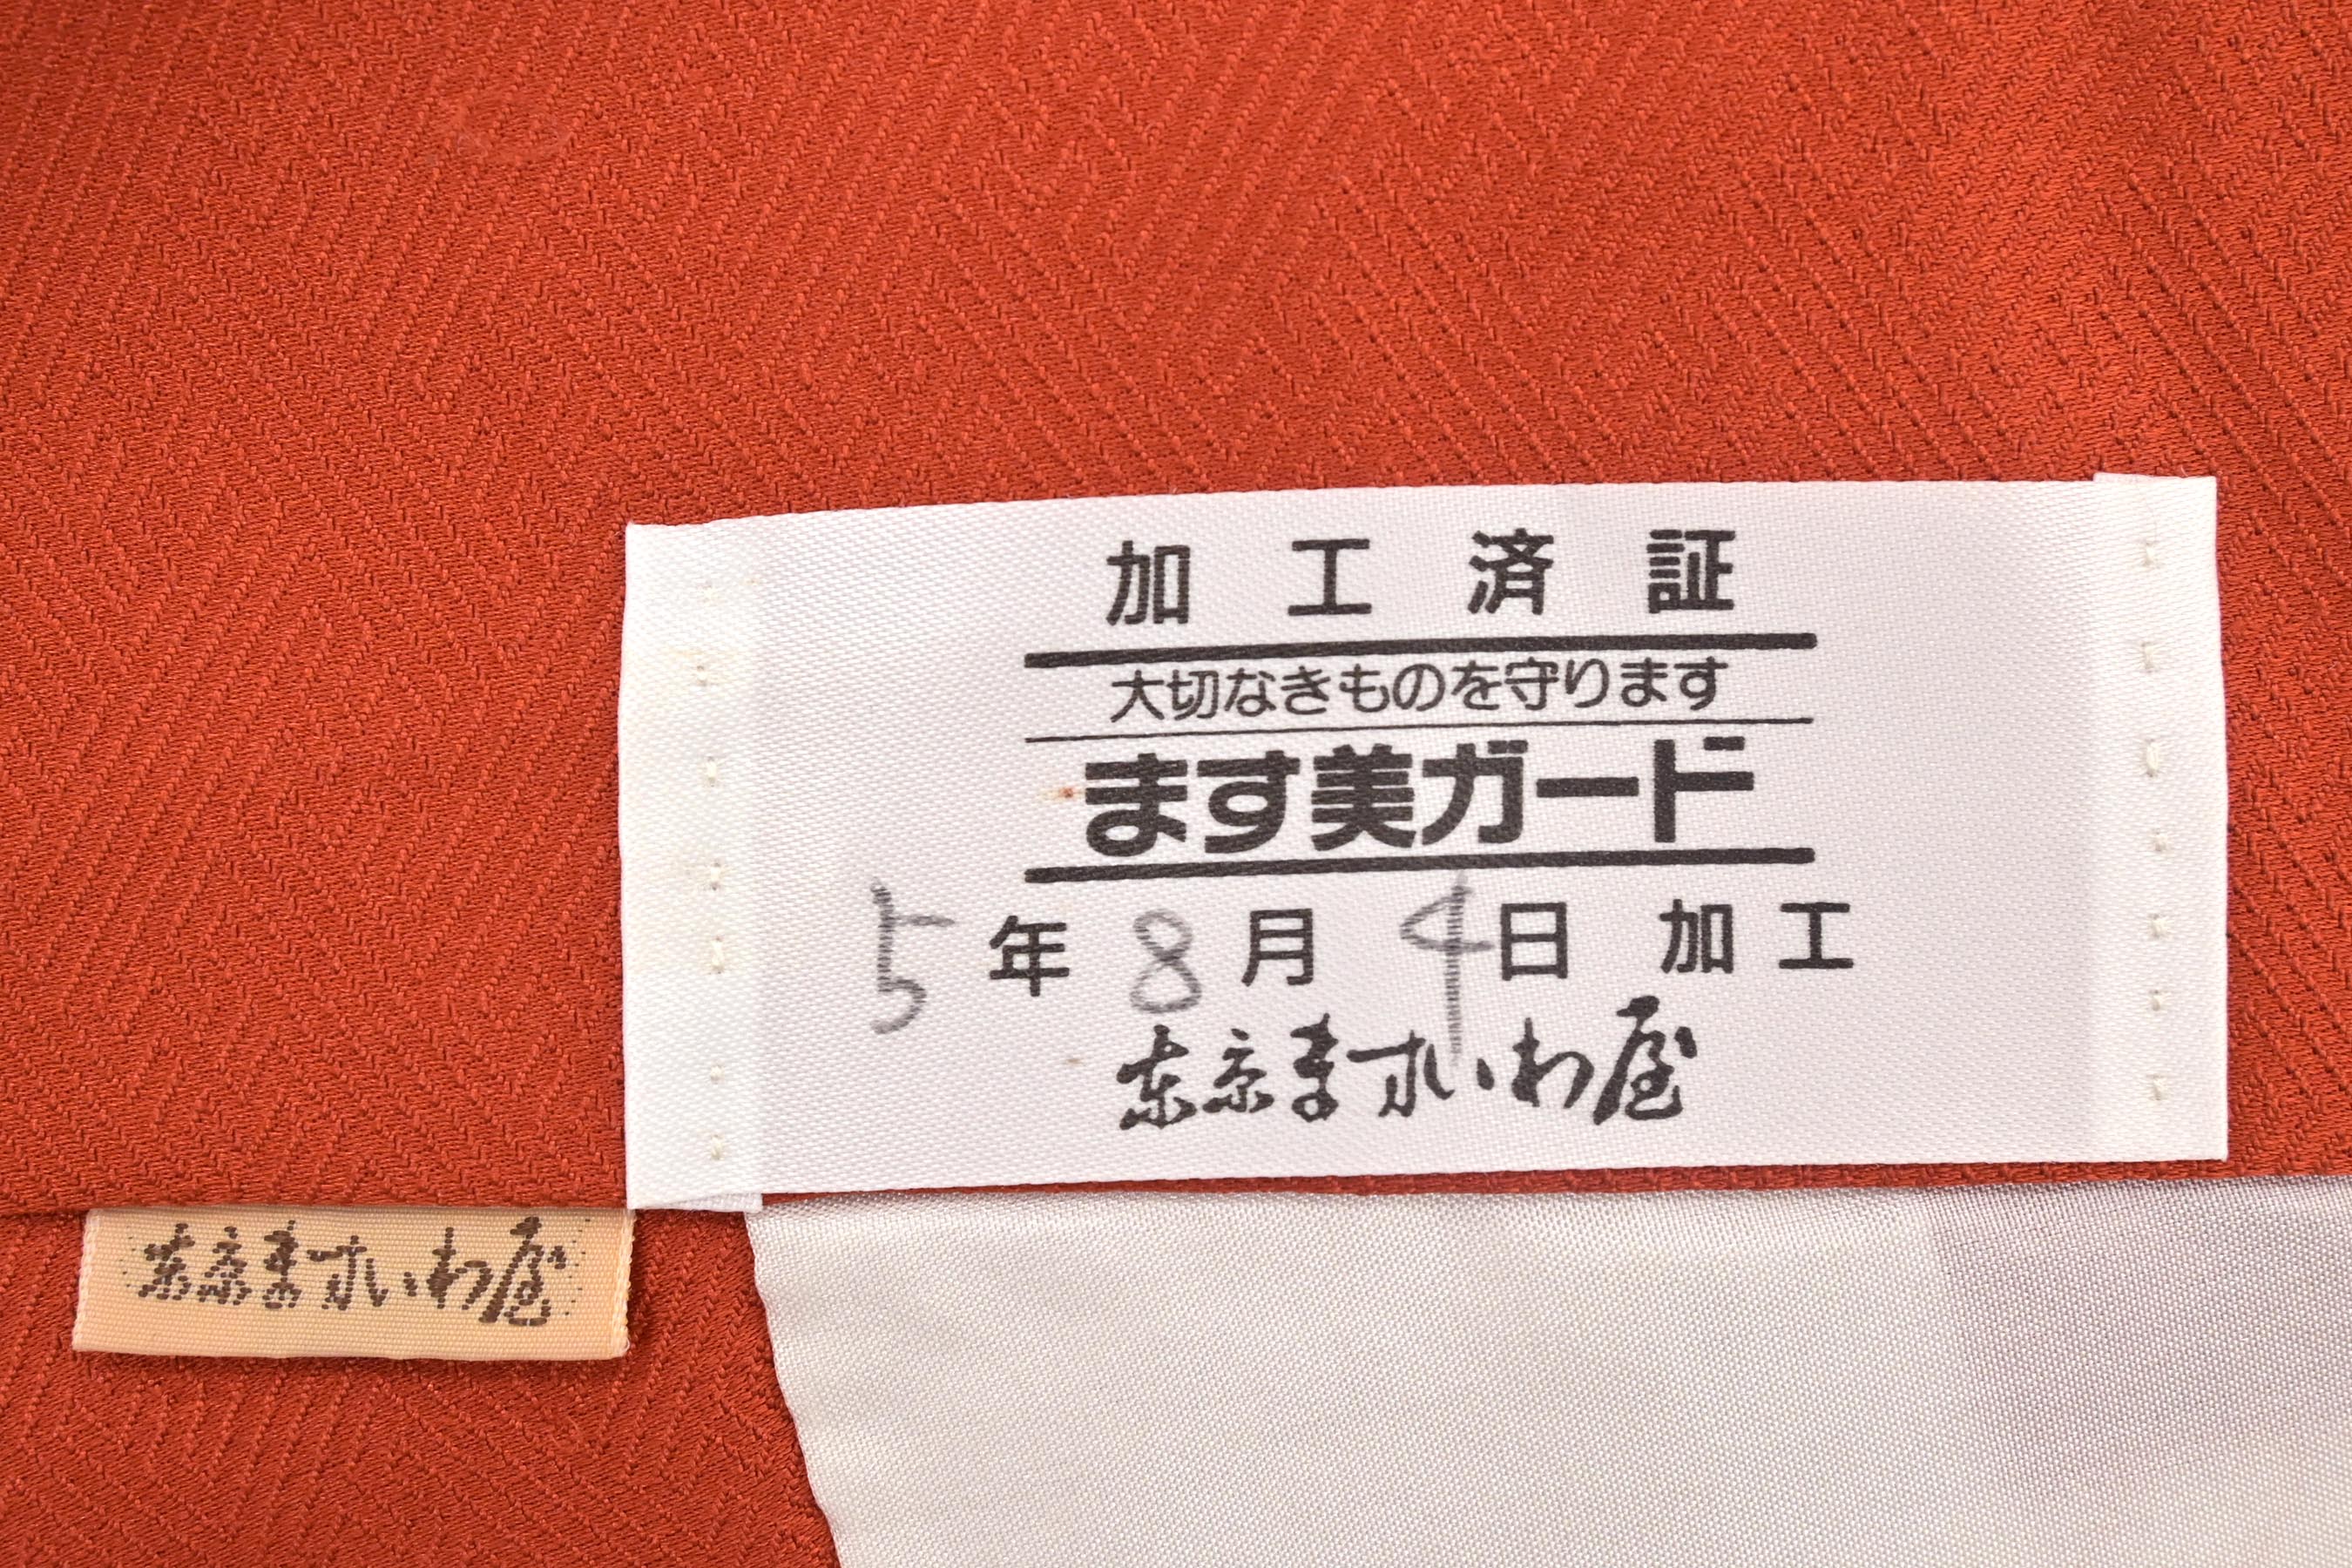 加工済証
大切なきものを守ります
ます美ガード
5年8月4日 加工
東京ますいわ屋
東京ますいわ屋